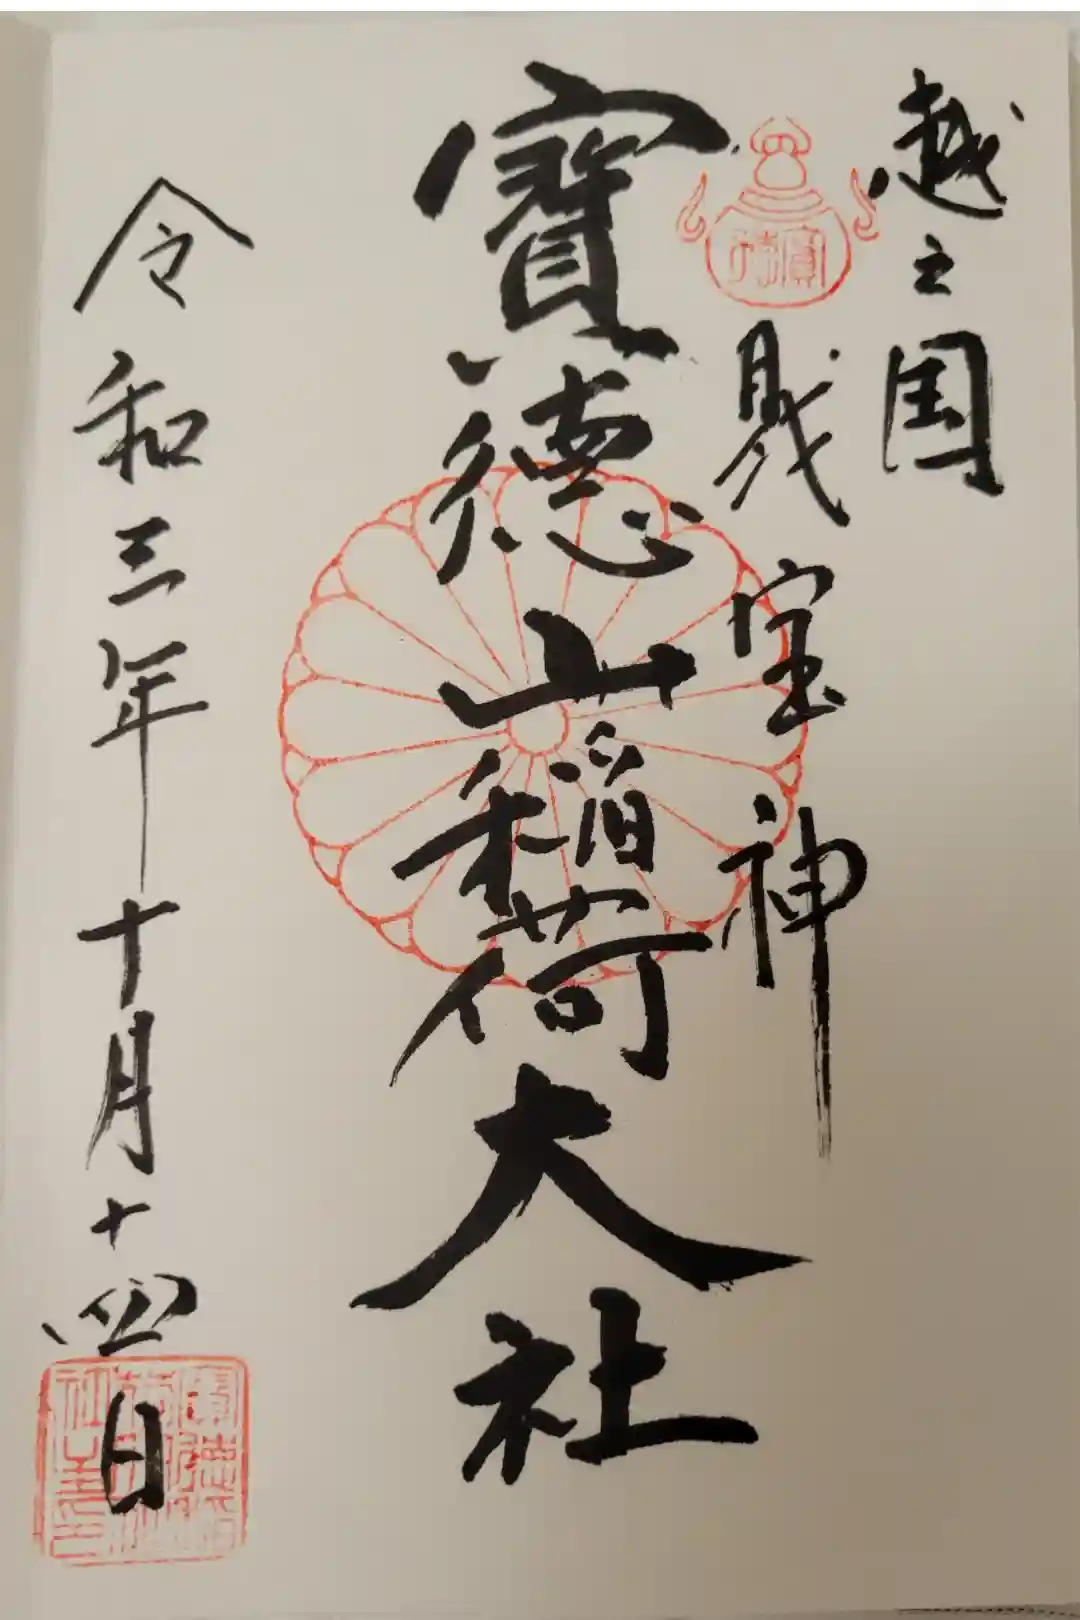 越之国
財宝神
寶徳山稲荷大社
令和三年十月十四日